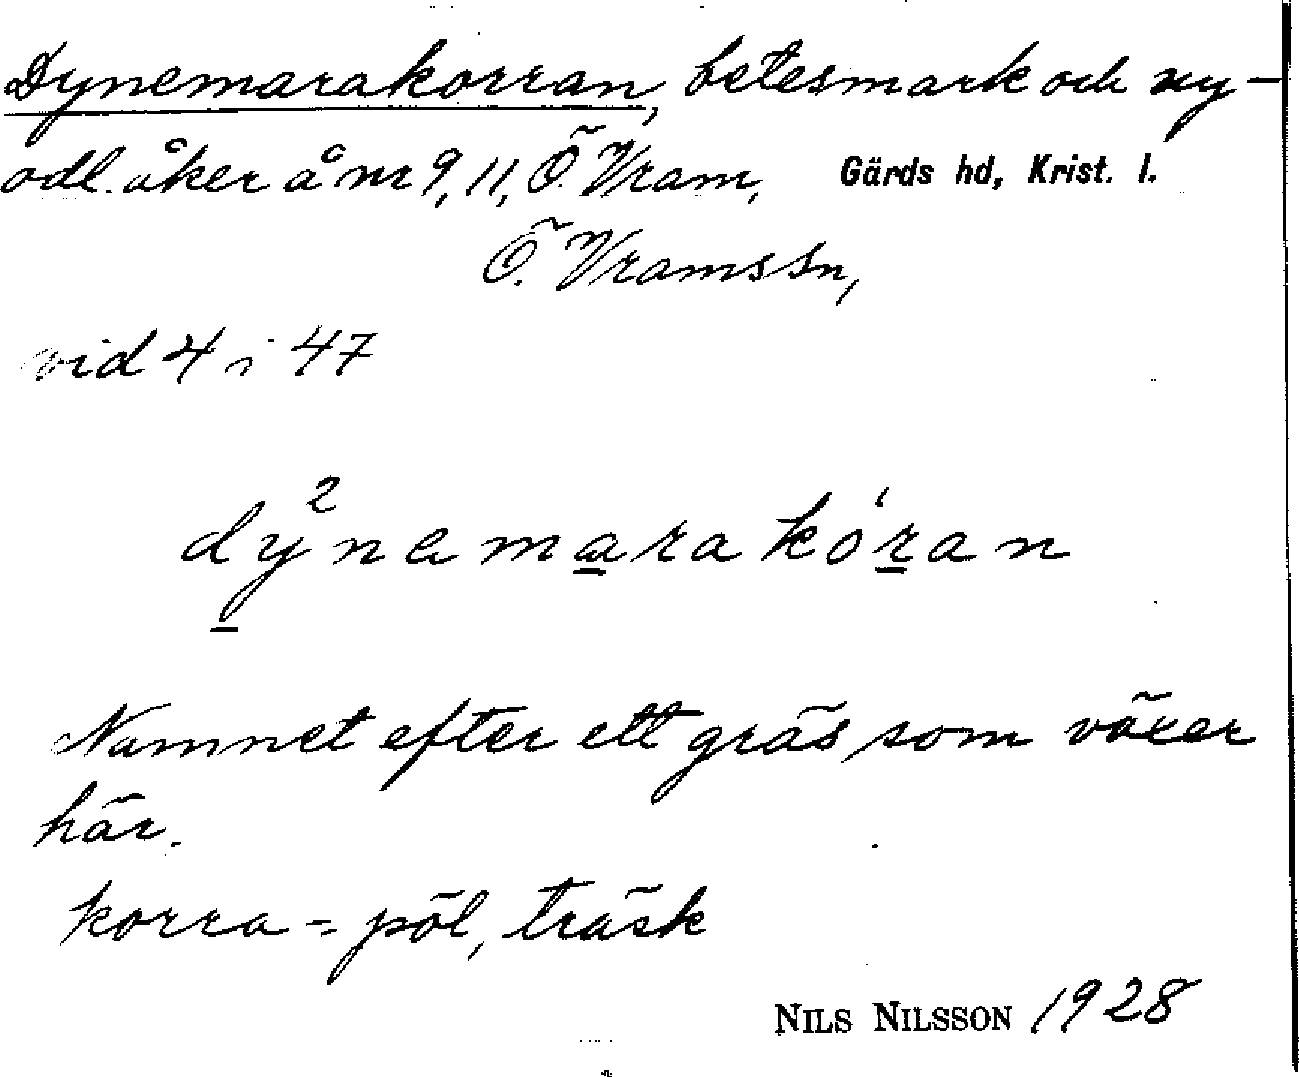 Dynemarakorran, betesmark och ny-
odl. åker å nr 9, 11, Ö. Vram, Gärds hd, Krist. l.
Ö. Vramssn,
vid 4 i 47
dy²nemarakór̲an
Namnet efter ett gräs som växer
här.
korra = pöl, träsk
NILS NILSSON 1928